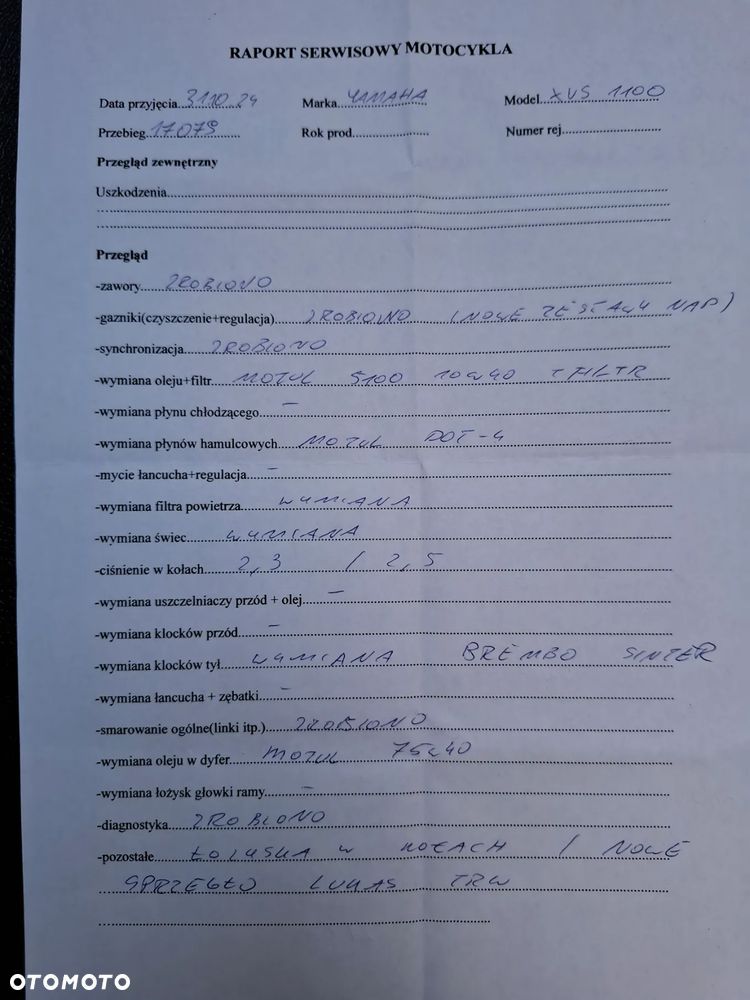 RAPORT SERWISOWY MOTOCYKLA
Data przyjęcia 31.10.24 Marka YAMAHA Model XVS 1100
Przebieg 17079 Rok prod. Numer rej.
Przegląd zewnętrzny
Uszkodzenia
Przegląd
-zawory ZROBIONO
-gazniki(czyszczenie+regulacja) ZROBIONO (NOWE ZESTAWY NAP)
-synchronizacja ZROBIONO
-wymiana oleju+filtr MOTUL 5100 10w40 + FILTR
-wymiana płynu chłodzącego –
-wymiana płynów hamulcowych MOTUL DOT-4
-mycie łancucha+regulacja –
-wymiana filtra powietrza WYMIANA
-wymiana świec WYMIANA
-ciśnienie w kołach 2,3 / 2,5
-wymiana uszczelniaczy przód + olej –
-wymiana klocków przód –
-wymiana klocków tył WYMIANA BREMBO SINTER
-wymiana łancucha + zębatki –
-smarowanie ogólne(linki itp.) ZROBIONO
-wymiana oleju w dyfer MOTUL 75w40
-wymiana łożysk głowki ramy –
-diagnostyka ZROBIONO
-pozostałe ŁOZYSKA w KOŁACH / NOWE
SPRZEGŁO LUKAS TRW
OTOMOTO